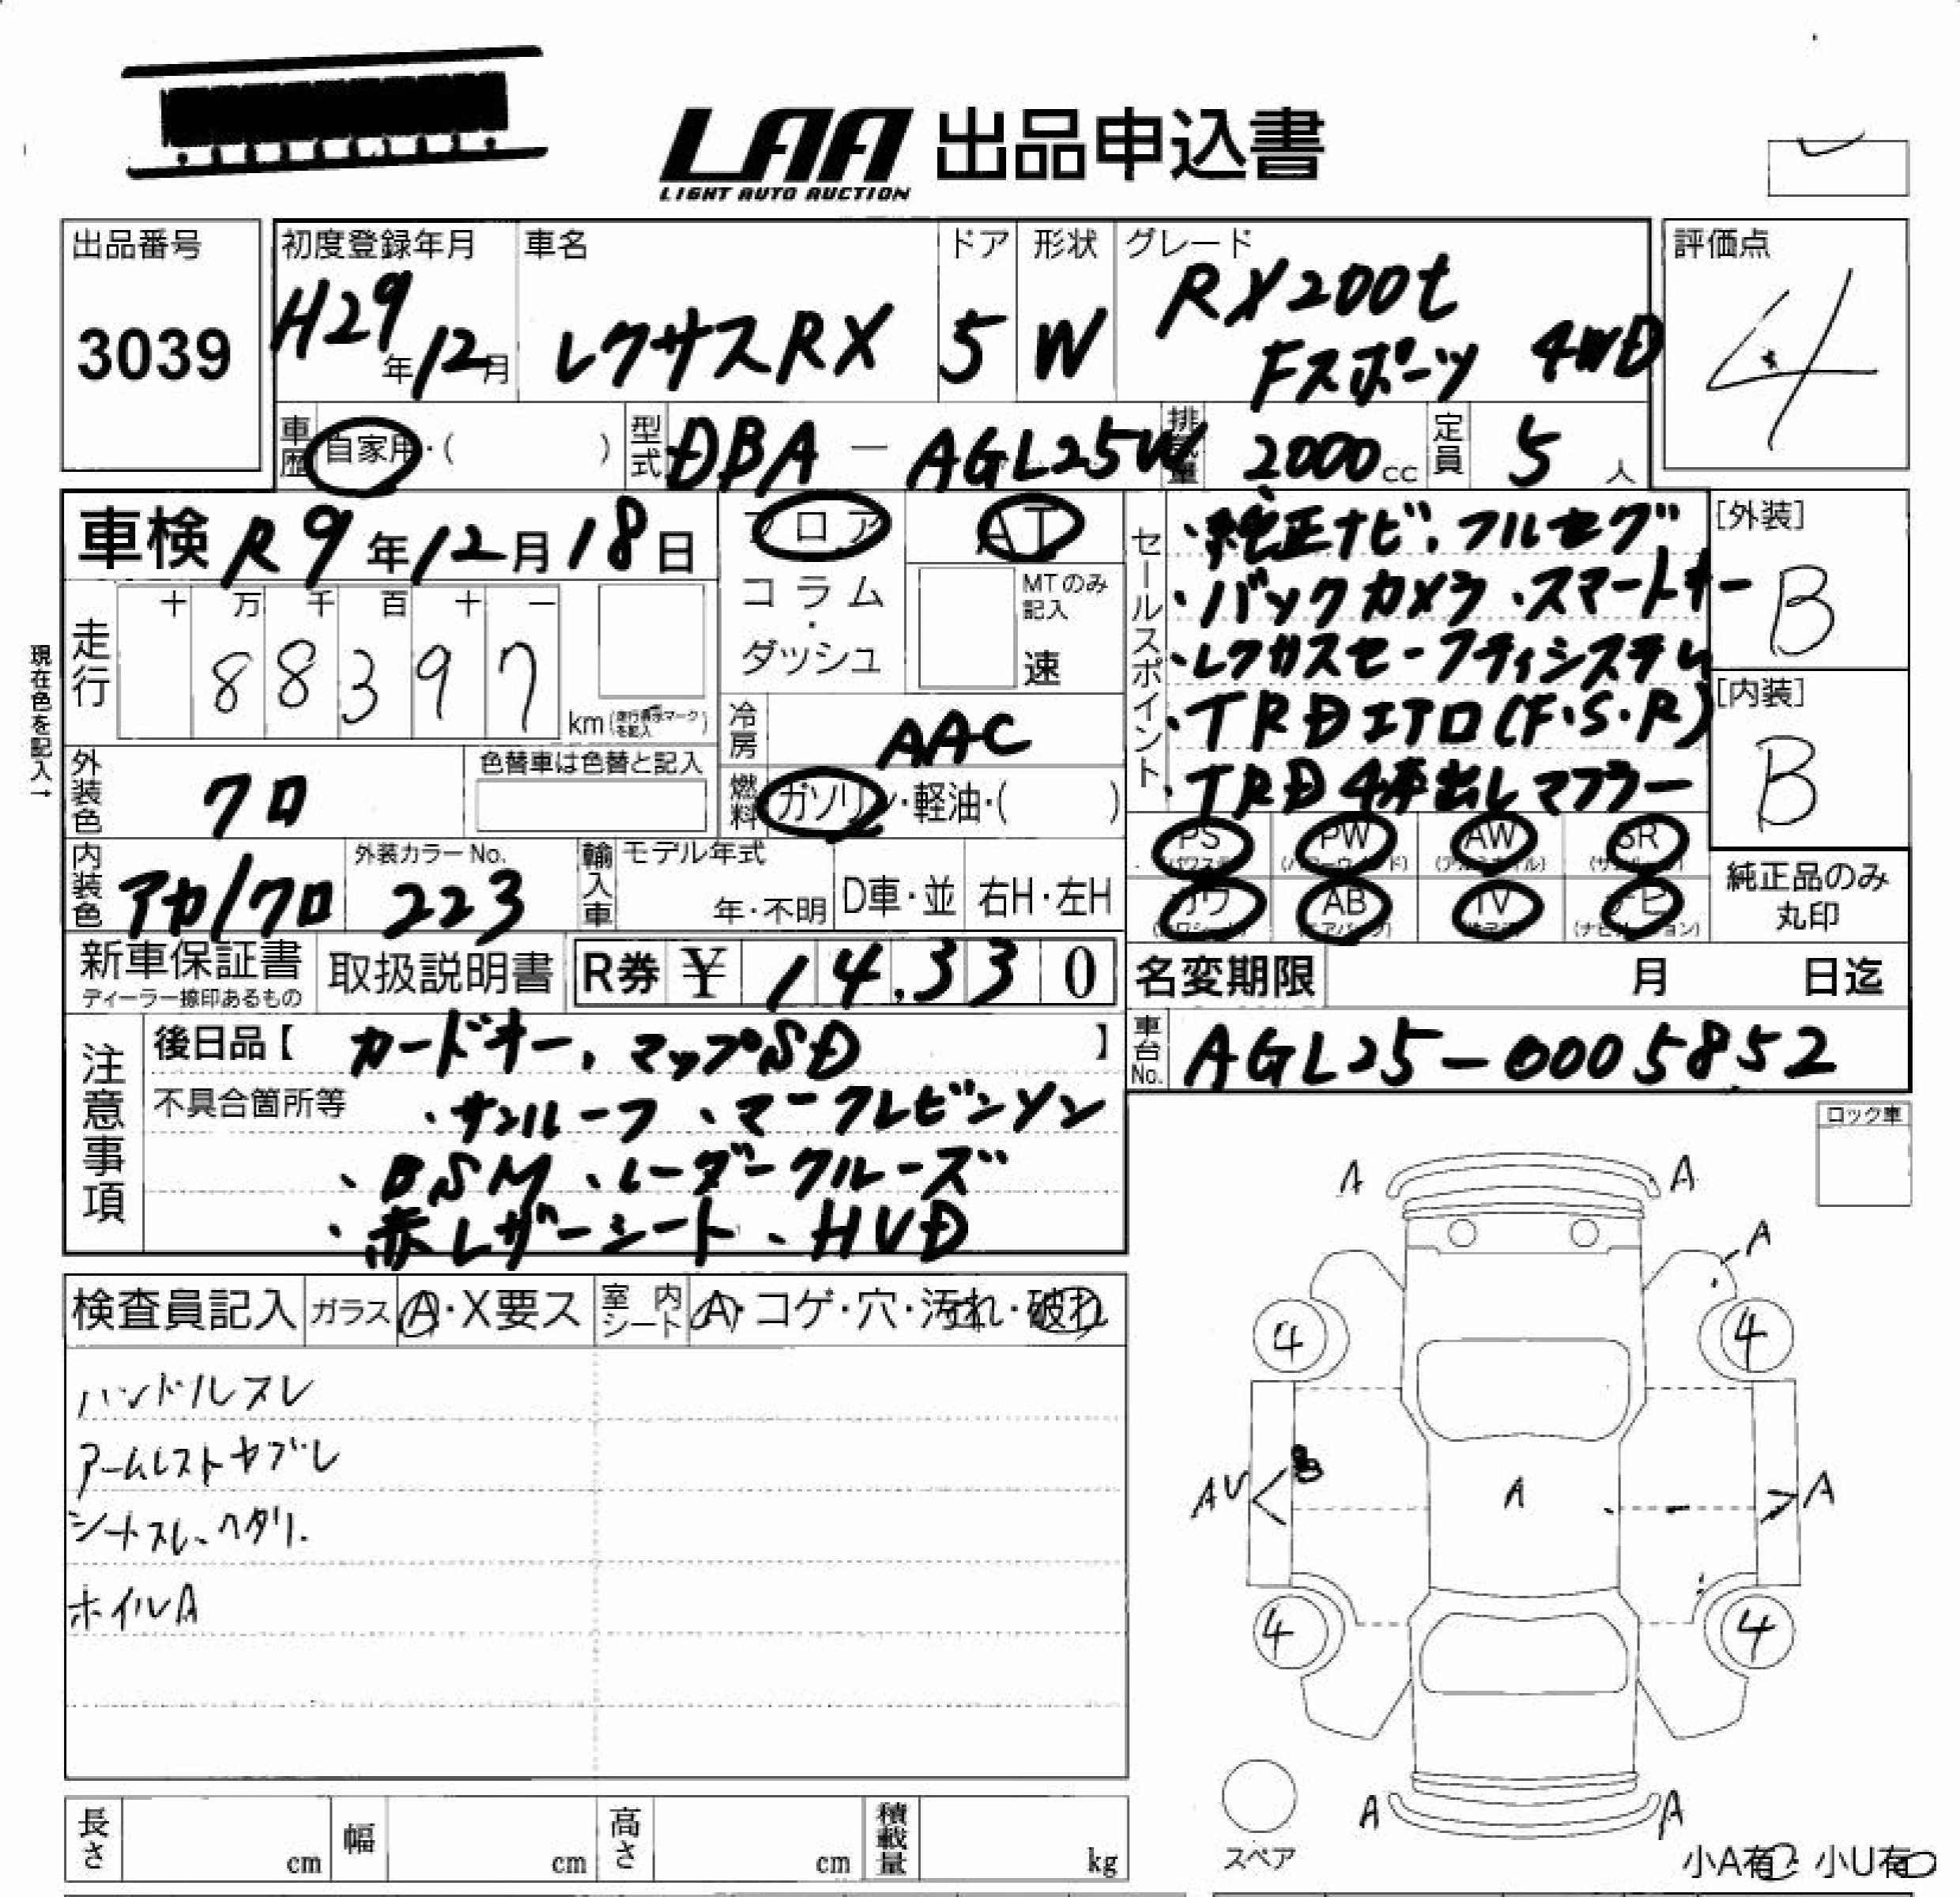 LAA 出品申込書
LIGHT AUTO AUCTION
出品番号
3039
初度登録年月
H29年12月
車名
レクサスRX
ドア
5
形状
W
グレード
RX200t
Fスポーツ 4WD
評価点
4
車歴 自家用・( )
型式 DBA-AGL25W
排気量 2000cc
定員 5人
車検 R9年12月18日
フロア
コラム・
ダッシュ
AT
MTのみ
記入
速
セールスポイント
・純正ナビ、フルセグ
・バックカメラ、スマートキー
・レクサスセーフティシステム
・TRDエアロ(F・S・R)
・TRD4本出しマフラー
[外装]
B
[内装]
B
現在色を記入→
走行
十 万 千 百 十 一
88397
km(走行表示マークを記入)
冷房 AAC
燃料 ガソリン・軽油・( )
外装色 クロ
色替車は色替と記入
内装色 アカ/クロ
外装カラーNo.
223
輸入車
モデル年式
年・不明
D車・並
右H・左H
PS PW AW SR
カワ AB TV ナビ
純正品のみ
丸印
新車保証書
ディーラー捺印あるもの
取扱説明書
R券 ¥ 14,330
名変期限 月 日迄
車台No. AGL25-0005852
注意事項
後日品【 カードキー、マップSD 】
不具合箇所等 ・サンルーフ、マークレビンソン
・BSM、レーダークルーズ
・赤レザーシート、HUD
ロック車
検査員記入 ガラス A・X要ス 室内シート A・コゲ・穴・汚れ・破れ
ハンドルスレ
アームレストヤブレ
シートスレ、ヘタリ.
ホイルA
A A
A
4 4
AU A A
4 4
A A
スペア
小A有・小U有
長さ cm 幅 cm 高さ cm 積載量 kg